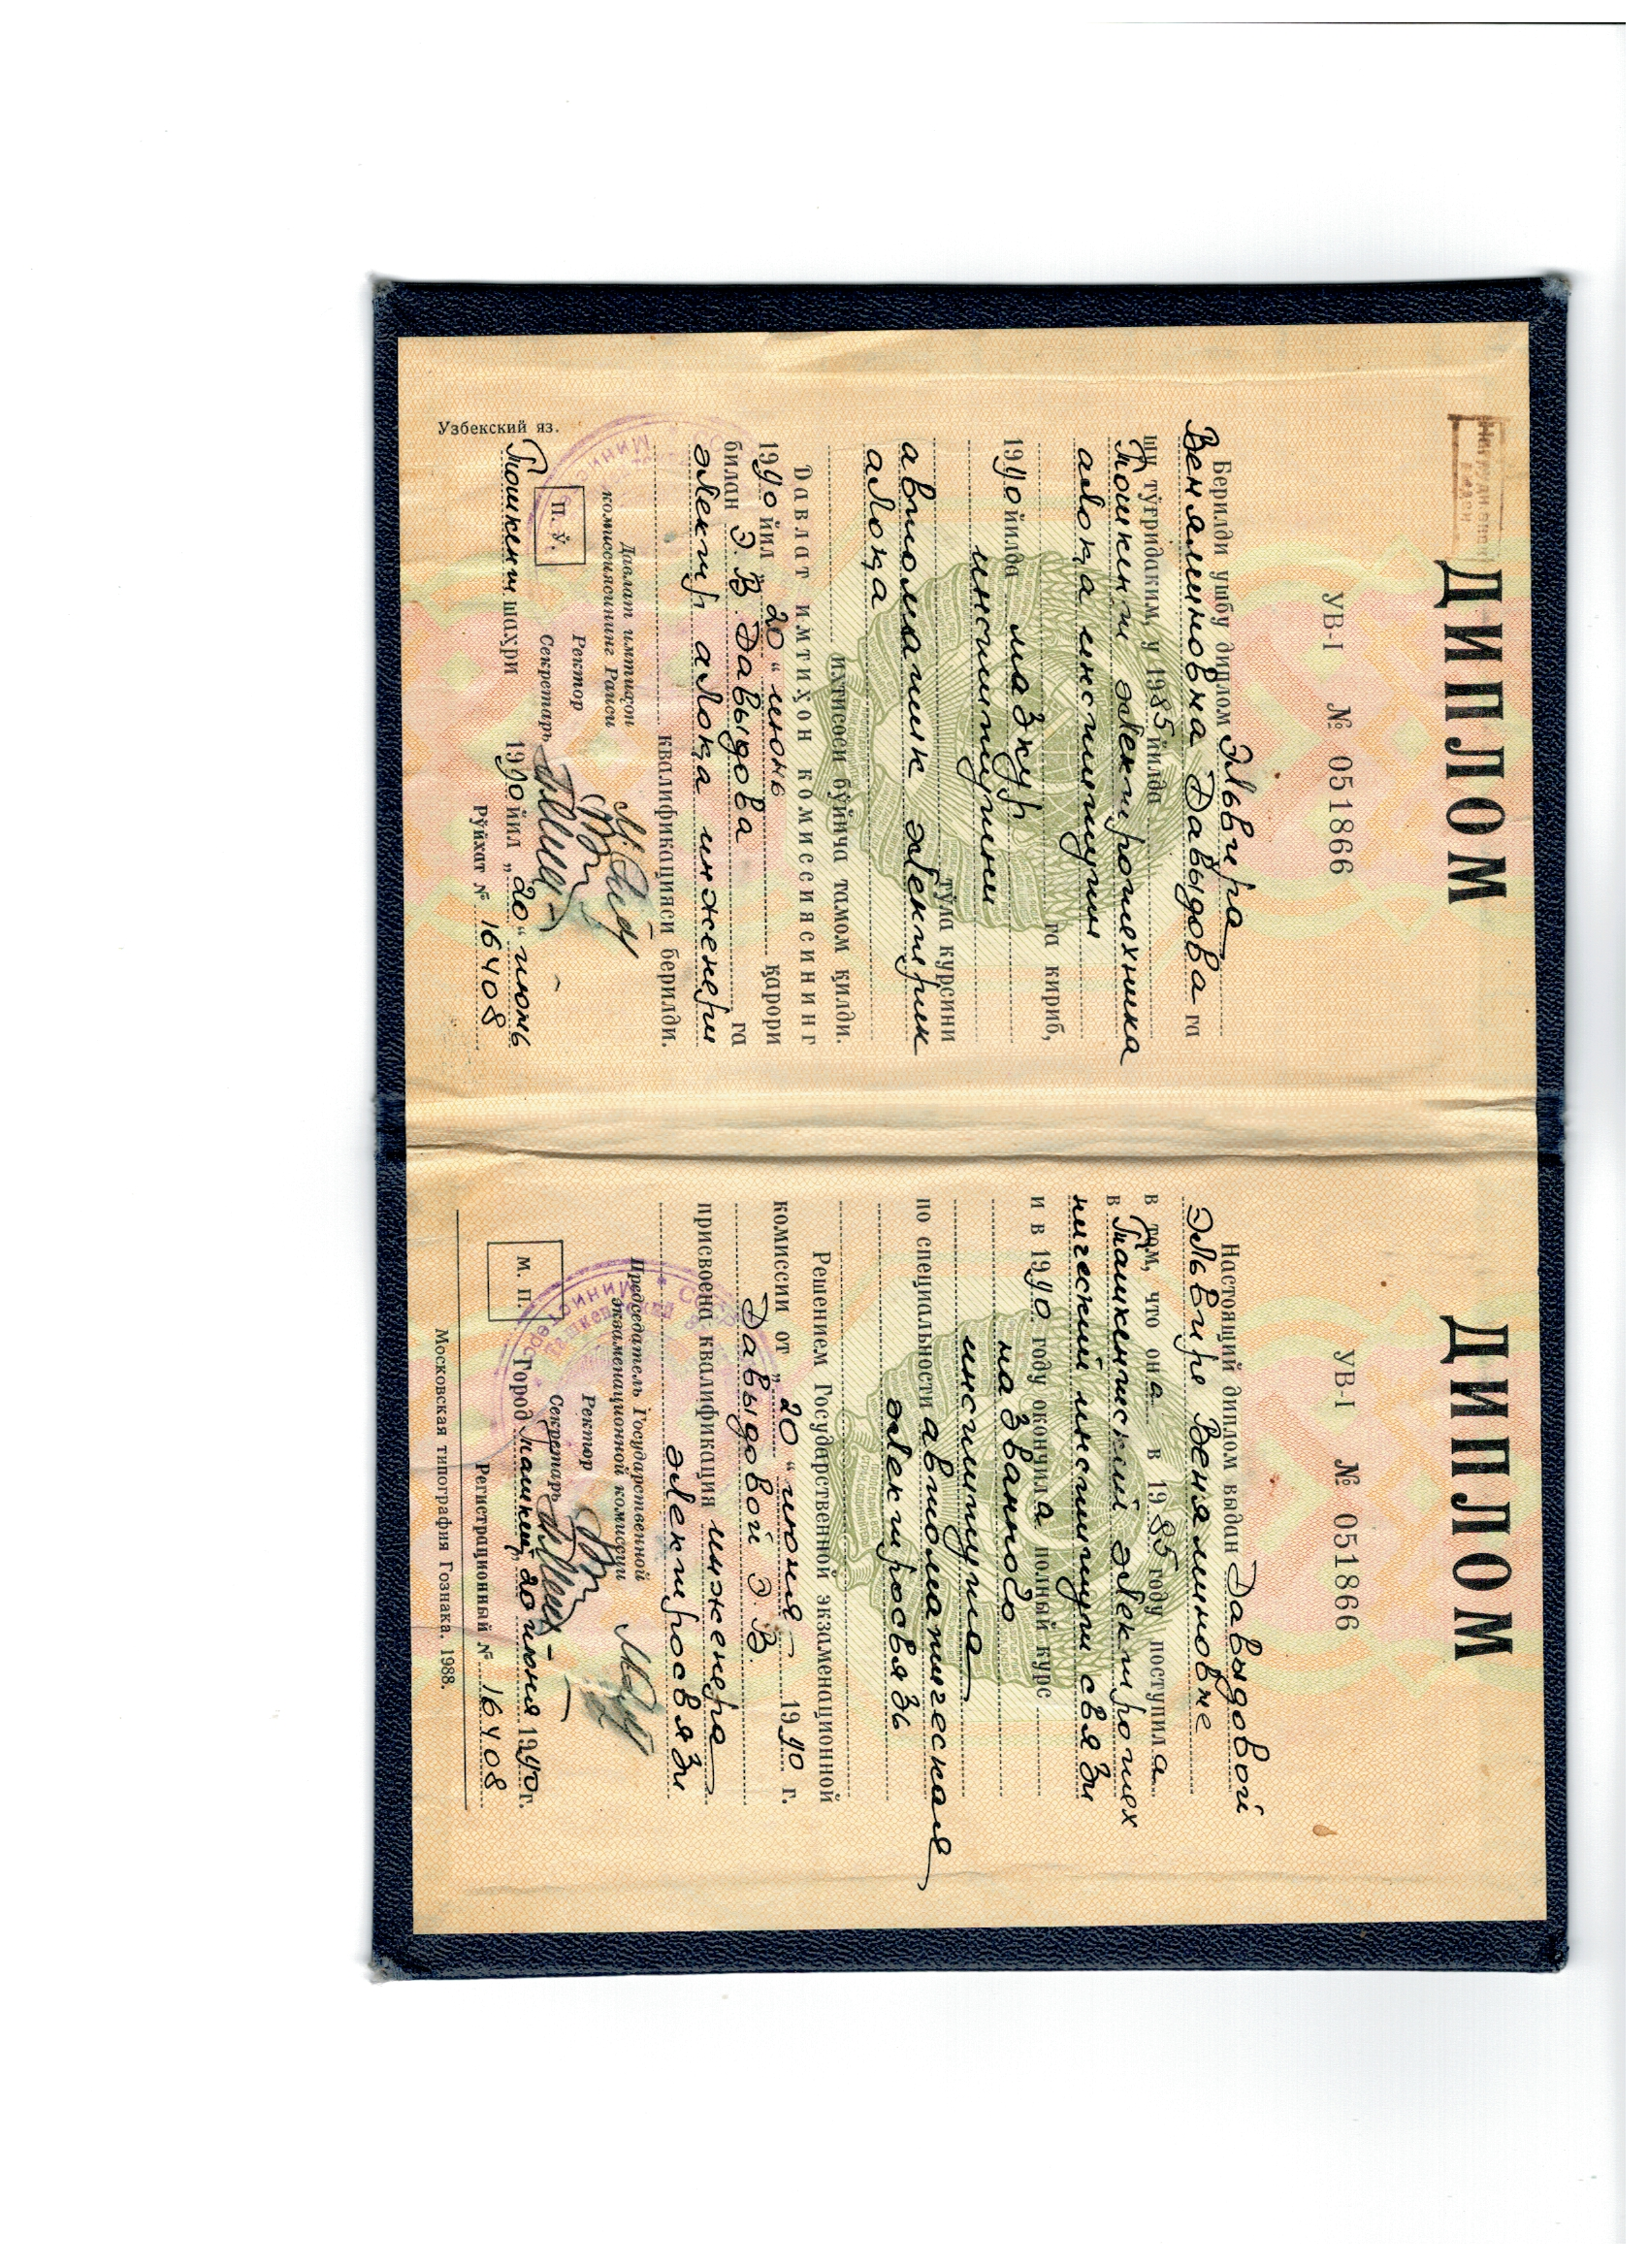 ДИПЛОМ
УВ-I № 051866
Берилди ушбу диплом Эльвира
Вениаминовна Давыдова га
шу тўғридаким, у 1985 йилда
Тошкент электротехника
алоқа институти
га кириб,
1990 йилда мазкур
институтини
тўла курсини
автоматик электрик
алоқа
ихтисоси бўйича тамом қилди.
Давлат имтиҳон комиссиясининг
1990 йил „20“ июнь қарори
билан Э. В. Давыдова га
электр алоқа инженери
квалификацияси берилди.
Давлат имтиҳон
комиссиясининг Раиси
Ректор
П. Ў.
Секретарь
Тошкент шаҳри 1990 йил „20“ июнь
Рўйхат № 16408
Узбекский яз.
ДИПЛОМ
УВ-I № 051866
Настоящий диплом выдан Давыдовой
Эльвире Вениаминовне
в том, что она в 1985 году поступила
в Ташкентский электротех
нический институт связи
и в 1990 году окончила полный курс
названного
института
по специальности автоматическая
электросвязь
Решением Государственной экзаменационной
комиссии от „20“ июня 1990 г.
Давыдовой Э. В.
присвоена квалификация инженера
электросвязи
Председатель Государственной
экзаменационной комиссии
Ректор
М. П.
Секретарь
Город Ташкент „20“ июня 1990 г.
Регистрационный № 16408
Московская типография Гознака. 1988.